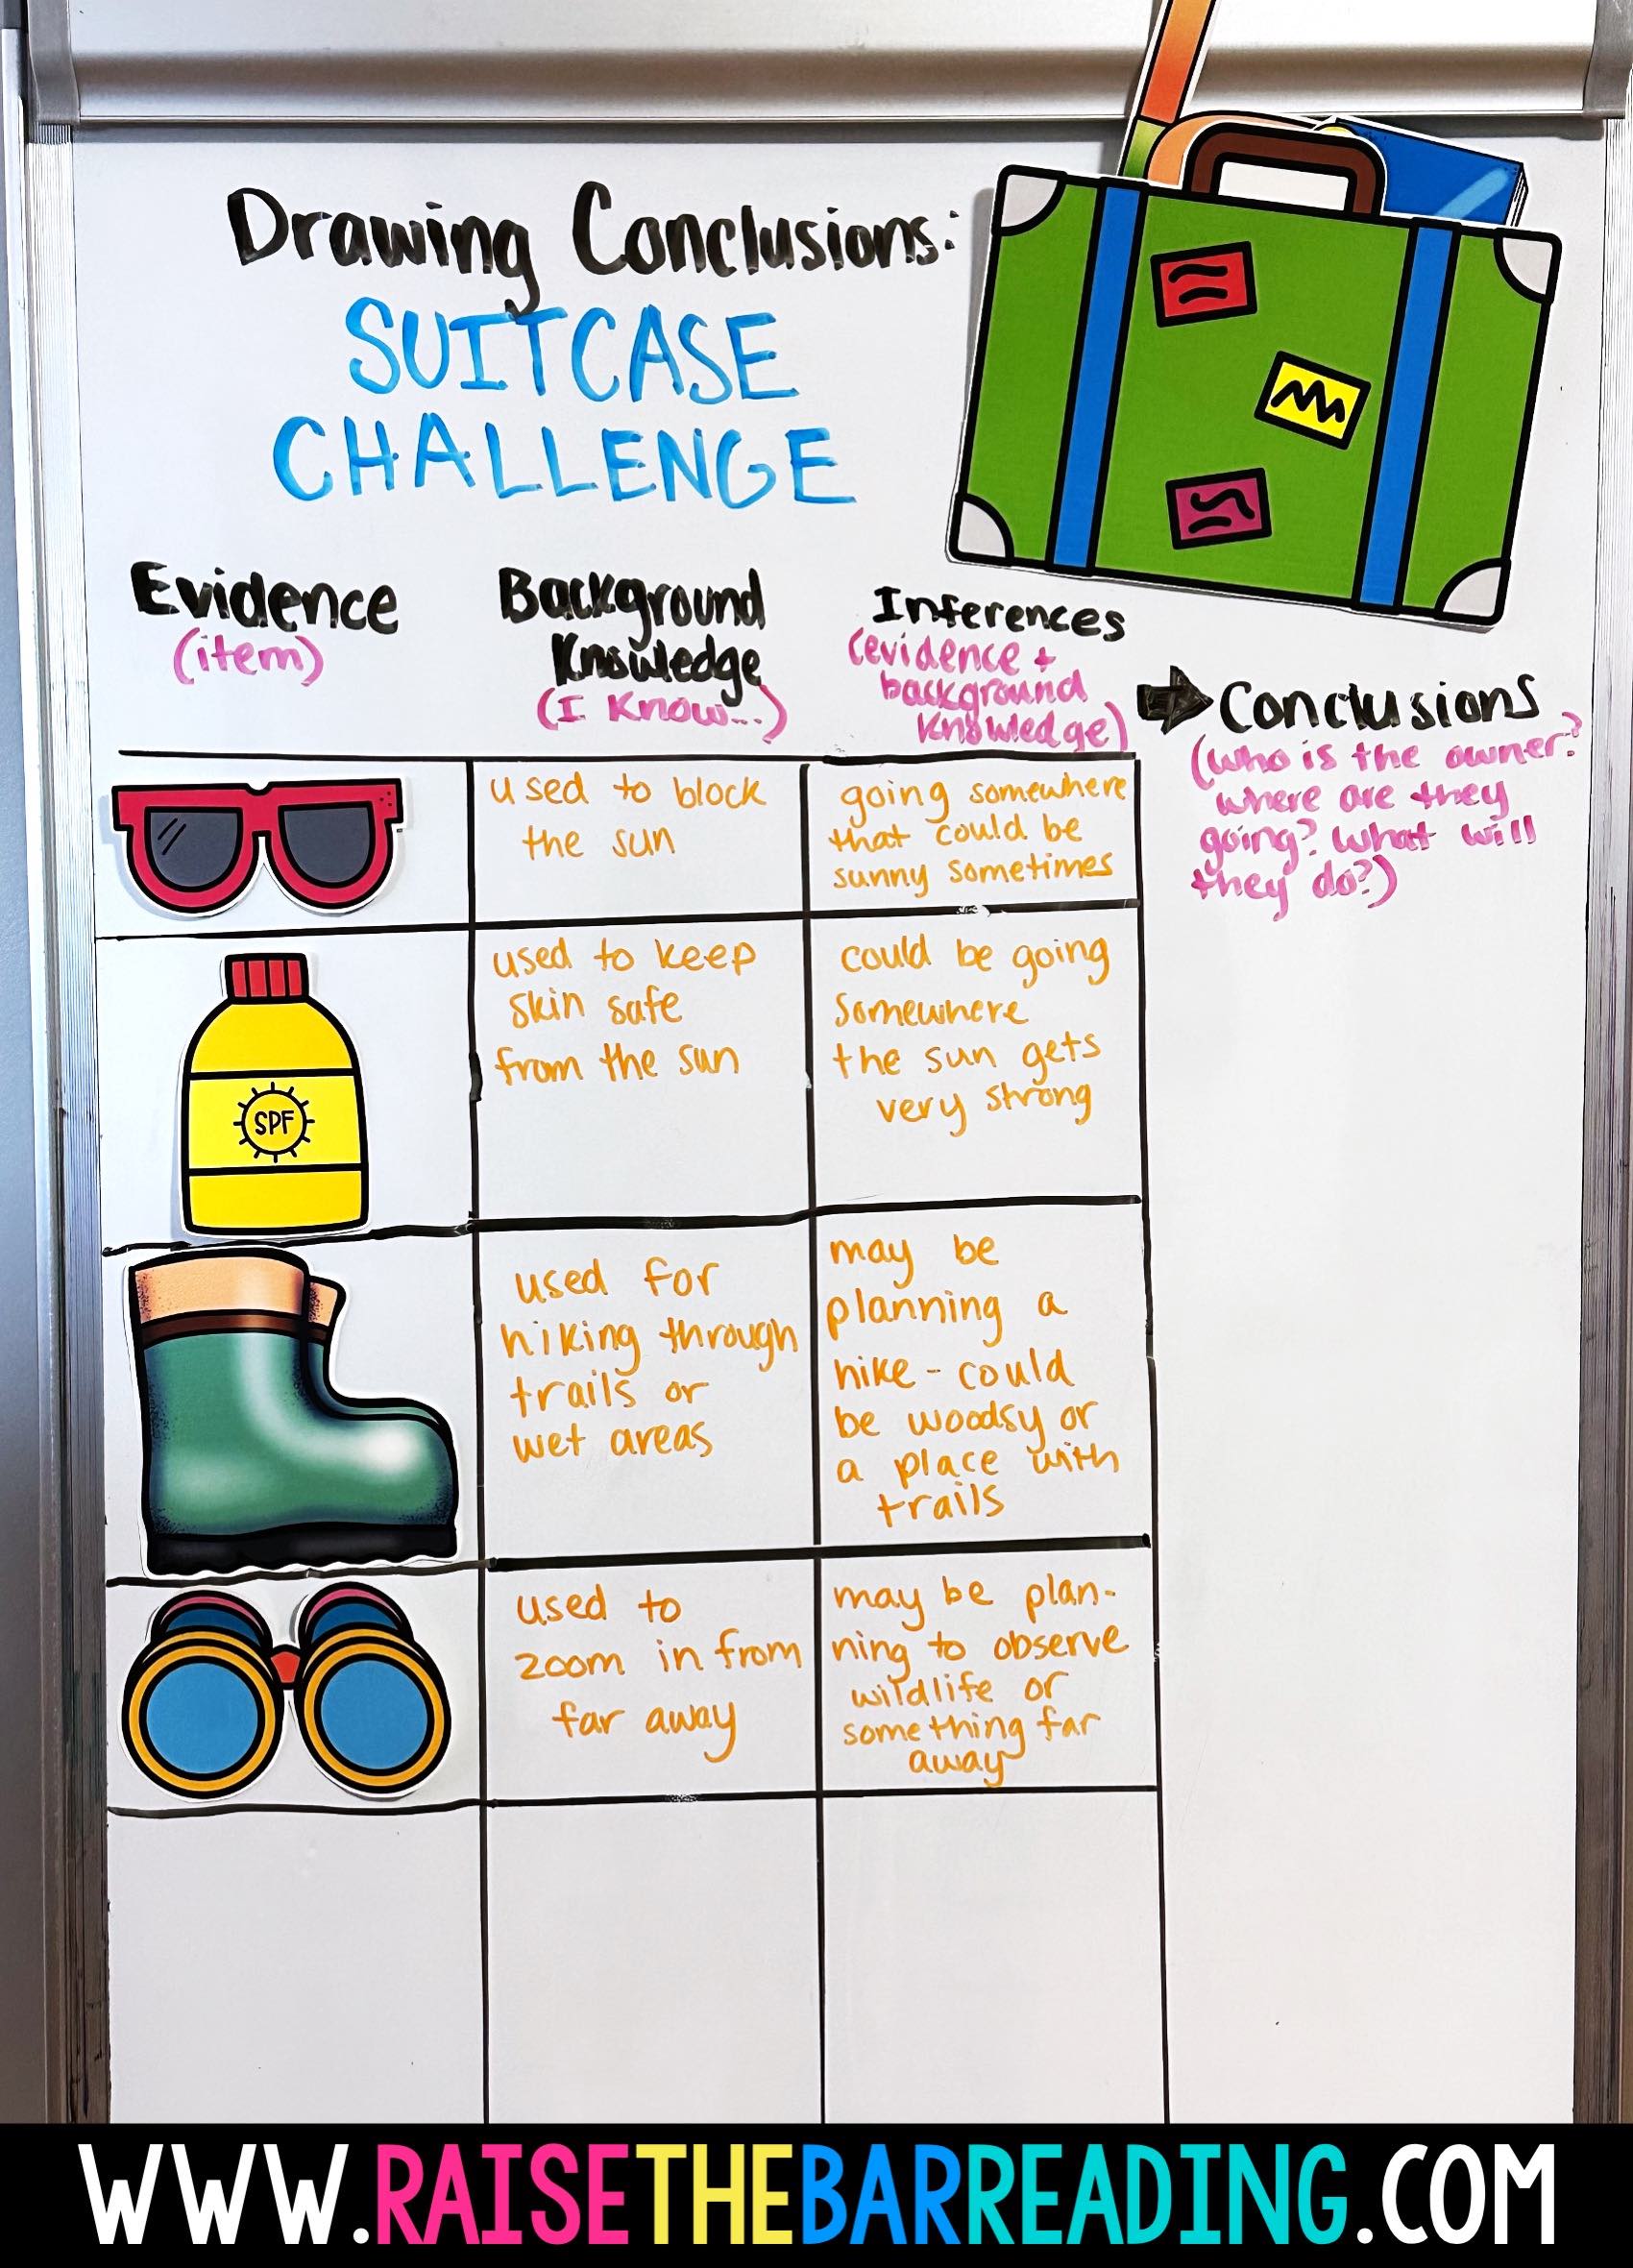 Drawing Conclusions:
SUITCASE
CHALLENGE
Evidence
(item)
Background
Knowledge
(I know...)
Inferences
(evidence +
background
knowledge)
Conclusions
(who is the owner?
where are they
going? what will
they do?)
used to block
the sun
going somewhere
that could be
sunny sometimes
SPF
used to keep
skin safe
from the sun
could be going
somewhere
the sun gets
very strong
used for
hiking through
trails or
wet areas
may be
planning a
hike - could
be woodsy or
a place with
trails
used to
zoom in from
far away
may be plan-
ning to observe
wildlife or
something far
away
WWW.RAISETHEBARREADING.COM